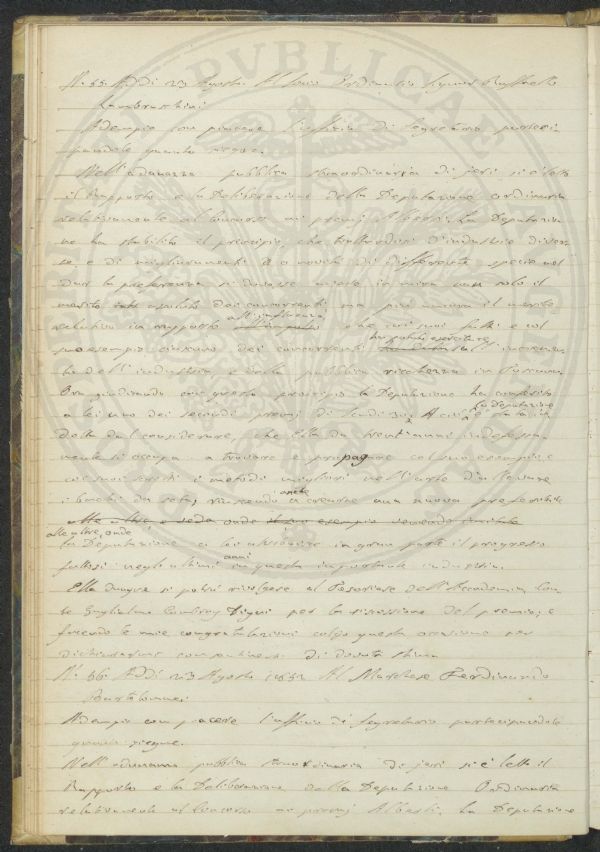 N. 55. Addi 23 Agosto. Al Socio Ordinario Signor Raffaello
Lambruschini
Adempio con piacere l'uffizio di Segretario parteci
pandole quanto segue.
Nell'adunanza pubblica straordinaria di jeri si è letto
il Rapporto e la Deliberazione della Deputazione ordinaria
relativamente al Concorso ai premj Alberti. La Deputazio
ne ha stabilito il principio, che trattandosi d'industrie diver
se e di miglioramenti o novità di differente specie nel
dar la preferenza si dovesse avere in mira non solo il
merito assoluto dei concorrenti ma più ancora il merito
relativo in rapporto all'influenza che coi suoi fatti e col
suo esempio ciascuno dei concorrenti ha potuto esercitare sull'incremen
to dell'industria, e della pubblica ricchezza in Toscana.
Ora giudicando con questo principio la Deputazione ha conferito
a lei uno dei secondi premj di Scudi A ciò la Deputazione è stata in
dotta dal considerare, che Ella da trent'anni indefessa
mente si occupa a trovare e propagare col suo esempio e
coi suoi scritti i metodi migliori nell'arte d'allevare
i bachi da seta, riuscendo anche a crearne una nuova preferibile
alle altre, onde
la Deputazione a lei attribuisce in gran parte il progresso
fattosi negli ultimi anni in questa importante industria.
Ella dunque si potrà rivolgere al Tesoriere dell'Accademia Con
te Guglielmo Digny per la riscossione del premio; e
facendole mie congratulazioni colgo questa occasione per
dichiararmi con sentimenti di devota stima
N. 56. Addi 23 Agosto 1852 Al Marchese Ferdinando
Bartolommei
Adempio con piacere l'uffizio di Segretario partecipandole
quanto segue.
Nell'adunanza pubblica straordinaria di jeri si è letto il
Rapporto e la Deliberazione della Deputazione Ordinaria
relativamente al Concorso ai premj Alberti. La Deputazione